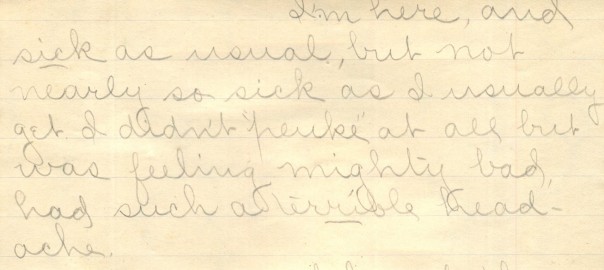 I'm here, and
sick as usual, but not
nearly so sick as I usually
get. I didn't "peuke" at all but
was feeling mighty bad,
had such a terrible head-
ache.